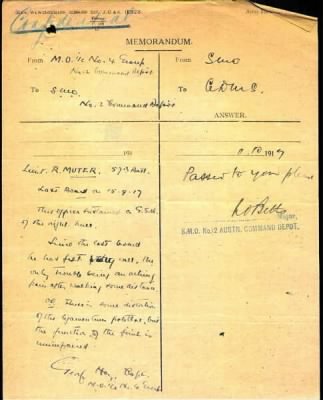 Confidential
MEMORANDUM.
From M.O. i/c No. 4 Group
No. 2 Command Depot
To S.M.O.
No. 2 Command Depot
From S.M.O
To A.D.M.S.
ANSWER.
191
1917
Lieut. R. MUTER. 57th Batt.
Last Board on 15.9.17
This officer sustained a G.S.W.
of the right knee.
Since the last board
he has felt well, the
only trouble being an aching
pain after walking some distance.
There is some
of the ligamentum patellae, but
the function of the joint is
unimpaired.
Passed to you please
Major,
S.M.O. No. 2 AUSTN. COMMAND DEPOT.
Capt.
M.O. i/c No. 4 Group